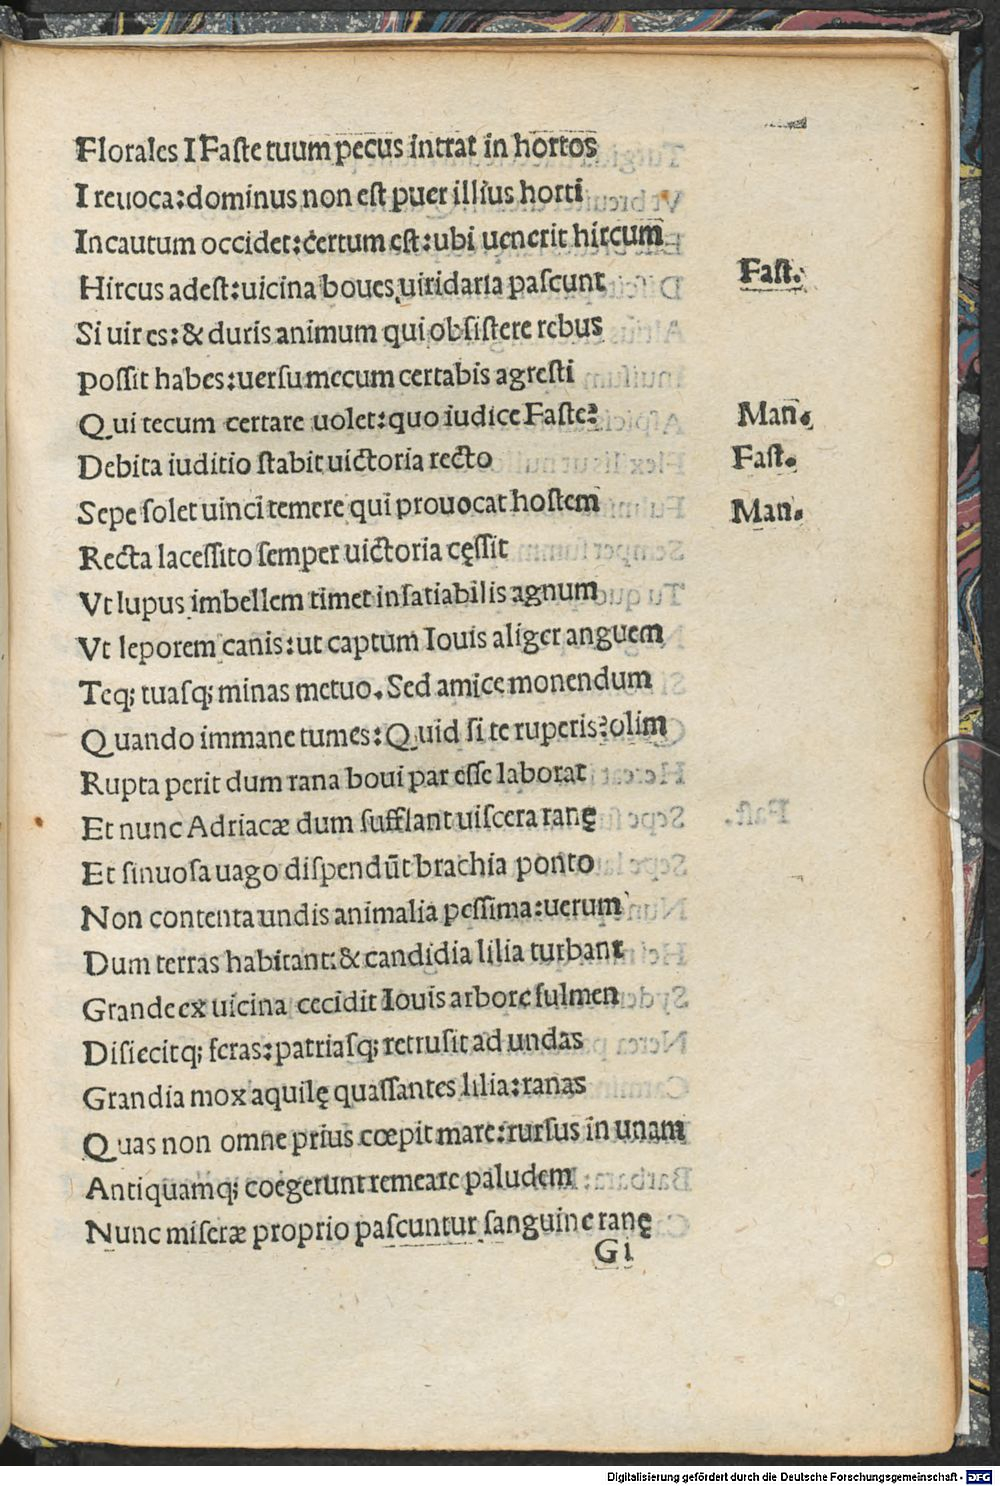 Florales I Faste tuum pecus intrat in hortos
I reuoca: dominus non est puer illius horti
Incautum occidet: certum est: ubi uenerit hircum
Hircus adest: uicina boues uiridaria pascunt Fast.
Si uir es: & duris animum qui obsistere rebus
possit habes: uersu mecum certabis agresti
Qui tecum certare uolet: quo iudice Faste? Man.
Debita iuditio stabit uictoria recto Fast.
Sepe solet uinci temere qui prouocat hostem Man.
Recta lacessito semper uictoria cęssit
Vt lupus imbellem timet insatiabilis agnum
Vt leporem canis: ut captum Iouis aliger anguem
Teq; tuasq; minas metuo. Sed amice monendum
Quando immane tumes: Quid si te ruperis? olim
Rupta perit dum rana boui par esse laborat
Et nunc Adriacæ dum sufflant uiscera ranę
Et sinuosa uago dispendūt brachia ponto
Non contenta undis animalia pessima: uerum
Dum terras habitant: & candidia lilia turbant
Grande ex uicina cecidit Iouis arbore fulmen
Disiecitq; feras: patriasq; retrusit ad undas
Grandia mox aquilę quassantes lilia: ranas
Quas non omne prius cœpit mare: rursus in unam
Antiquamq; coegerunt remeare paludem
Nunc miseræ proprio pascuntur sanguine ranę
G i
Digitalisierung gefördert durch die Deutsche Forschungsgemeinschaft - DFG